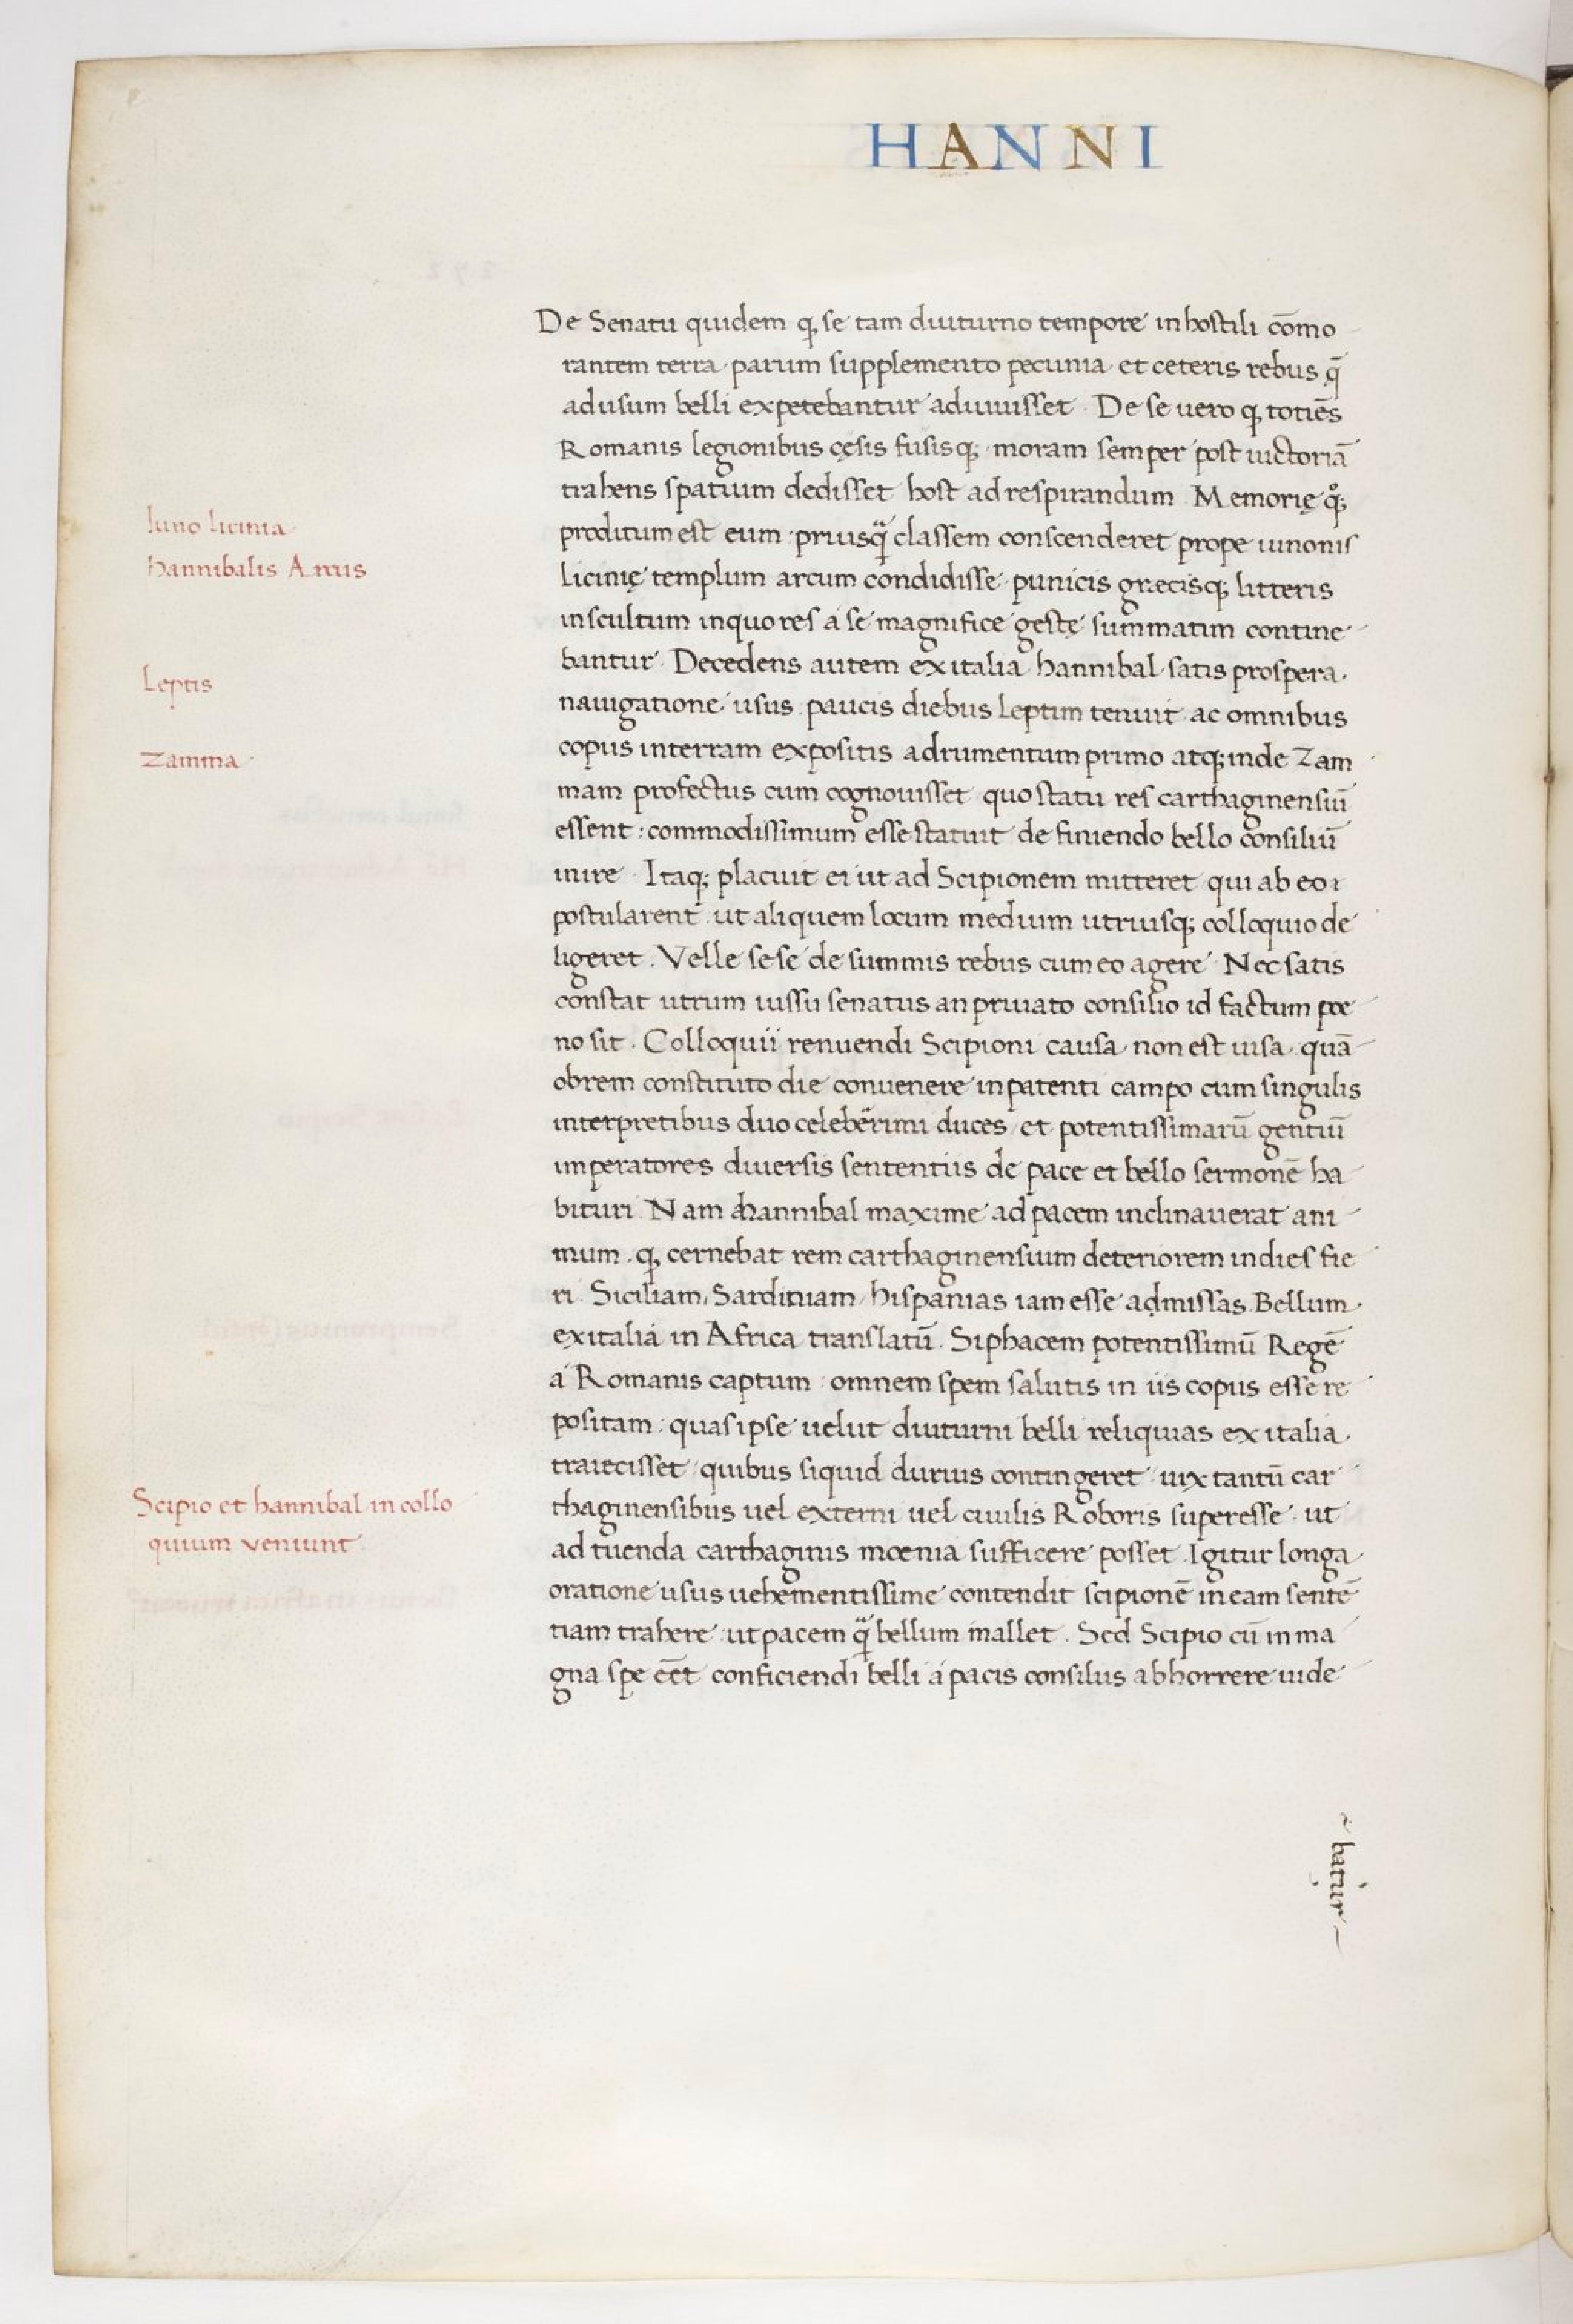 HANNI
De Senatu quidem ꝙ se tam diuturno tempore in hostili cōmo
rantem terra parum supplemento pecunia et ceteris rebus q̄
ad usum belli expetebantur adiuuisset. De se uero ꝙ totiēs
Romanis legionibus cęsis fusisq; moram semper post uictoriā
trahens spatium dedisset host ad respirandum. Memorię qͦq;
Iuno licinia
proditum est eum priusq̄ classem conscenderet prope iunonis
Hannibalis Arcus
Licinię templum arcum condidisse punicis græcisq; litteris
insculptum in quo res a se magnifice gestę summatim contine
bantur. Decedens autem ex italia hannibal satis prospera
Leptis
nauigatione usus paucis diebus Leptim tenuit ac omnibus
Zamma
copiis in terram expositis adrumentum primo atq; inde Zam
mam profectus cum cognouisset quo statu res carthaginensiū
essent: commodissimum esse statuit de finiendo bello consiliū
inire. Itaq; placuit ei ut ad Scipionem mitteret qui ab eo
postularent ut aliquem locum medium utriusq; colloquio de
ligeret. Velle sese de summis rebus cum eo agere. Nec satis
constat utrum iussu senatus an priuato consilio id factum poe
no sit. Colloquii renuendi Scipioni causa non est uisa quā
obrem constituto die conuenere in patenti campo cum singulis
interpretibus duo celeberrimi duces et potentissimarū gentiū
imperatores diuersis sententiis de pace et bello sermonē ha
bituri. Nam hannibal maxime ad pacem inclinauerat ani
mum ꝙ cernebat rem carthaginensium deteriorem indies fie
ri. Siciliam, Sardiniam, hispanias iam esse admissas. Bellum
ex italia in Africa translatū. Siphacem potentissimū Regē
a Romanis captum: omnem spem salutis in iis copiis esse re
positam: quas ipse uelut diuturni belli reliquias ex italia
traiecisset quibus siquid durius contingeret uix tantū car
Scipio et hannibal in collo
thaginensibus uel externi uel ciuilis Roboris superesse ut
quium veniunt
ad tuenda carthaginis moenia sufficere posset. Igitur longa
oratione usus uehementissime contendit scipionē in eam sentē
tiam trahere ut pacem q̄ bellum mallet. Sed Scipio cū in ma
gna spe eēt conficiendi belli a pacis consiliis abhorrere uide
batur